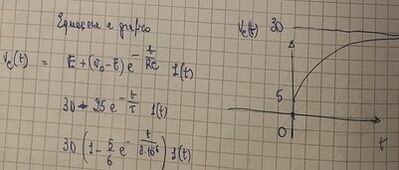 Equazione e grafico
v_c(t) = E + (v_0 - E) e^{-t/RC} 1(t)
30 - 25 e^{-t/τ} 1(t)
30 (1 - 5/6 e^{-t/3·10^6}) 1(t)
v_c(t) 30
5
0
t